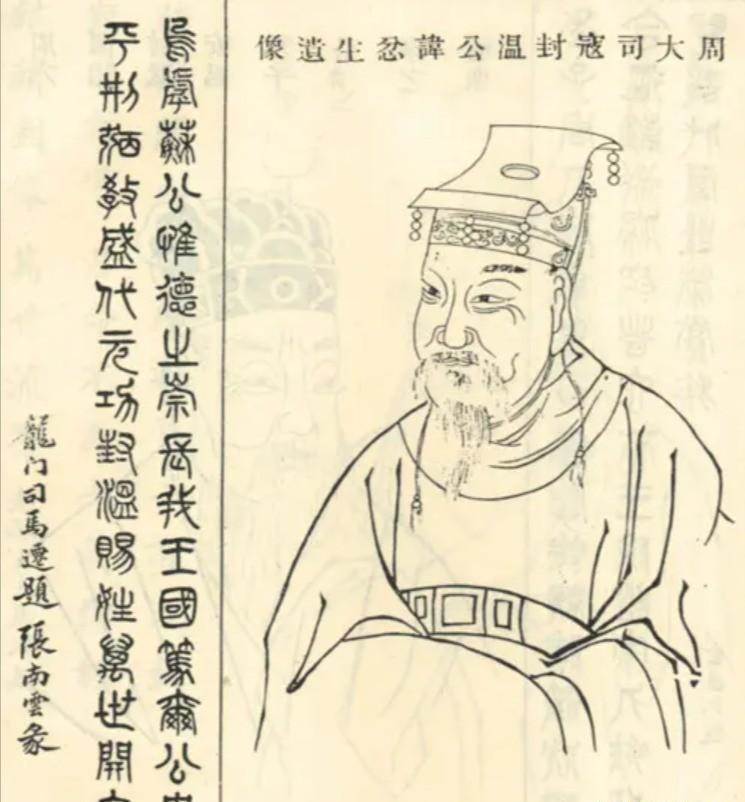 周大司寇封溫公諱忿生遺像
烏虖蘇公惟德之崇長我王國篤爾公
平刑弼敎盛代元功封溫賜姓萬世開
龍门司馬遷題 張南雲篆